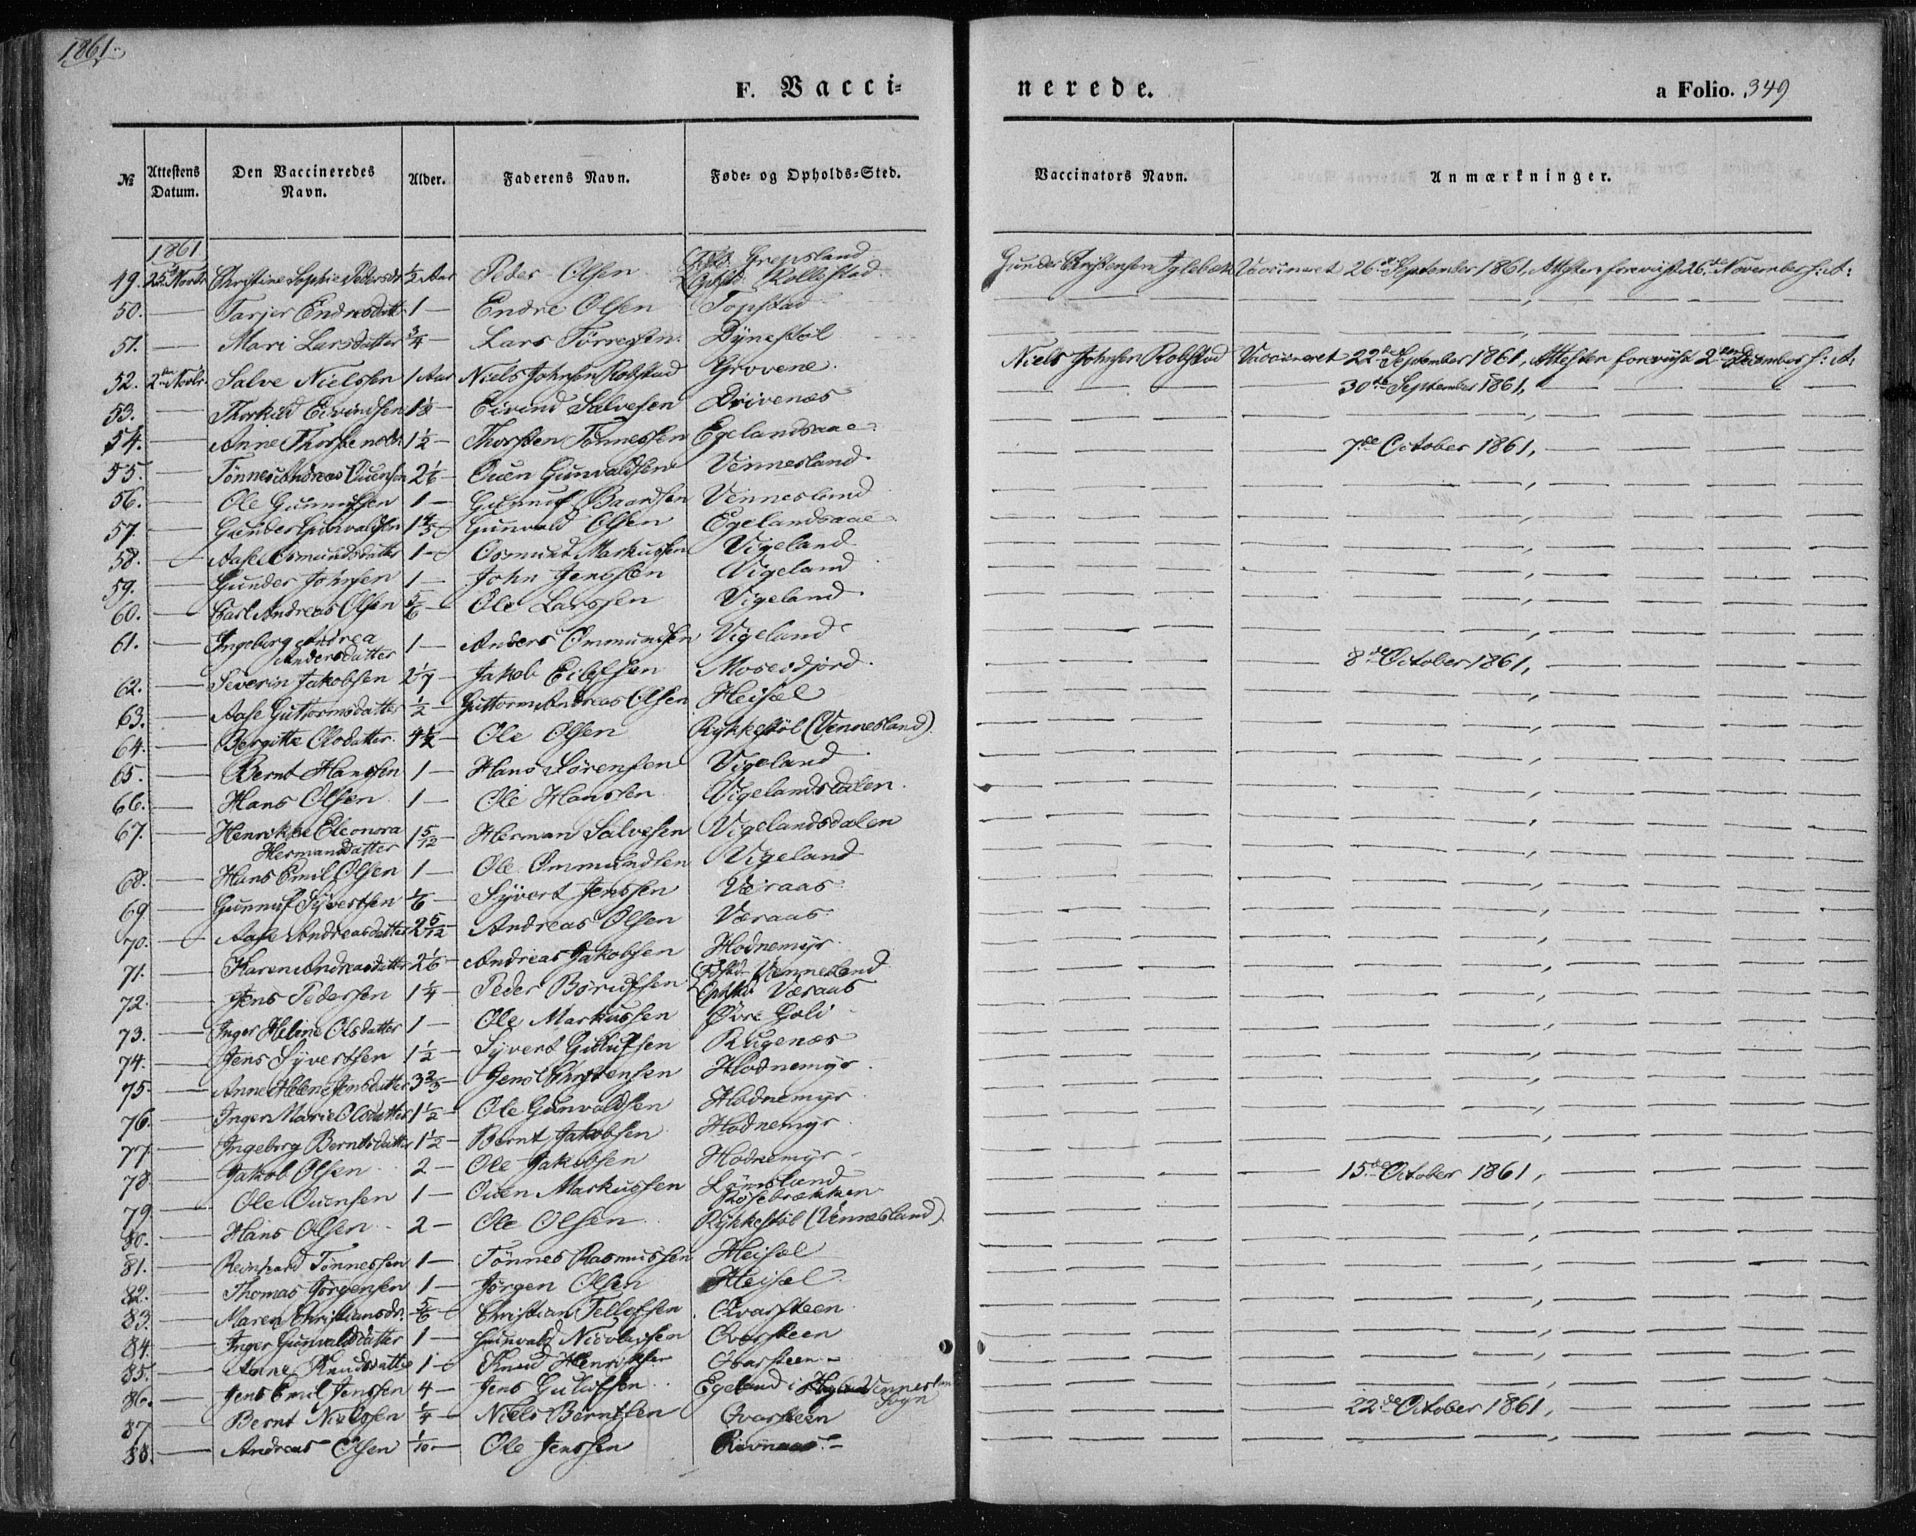 1861.
F. Vacci-
nerede.
a Folio. 349
№ Attestens Datum. Den Vaccineredes Navn. Alder. Faderens Navn. Føde- og Opholds-Sted. Vaccinators Navn. Anmærkninger.
1861
49. 25de Novbr Christine Sophie Pedersdr ½ Aar Peder Olsen Fød. Grepsland Opst. Rollestad Gunder Christensen Iglebæk Vaccineret 26de September 1861, Attesten foreviist 26de November s: A:
50. — Tarjer Endresdatt 1 — Endre Olsen Topstad
51. — Mari Larsdatter ¾ Lars Tørresen Dynestøl
52. 2den Novbr Salve Nielssen 1 Aar Niels Johnsen Robstad Grovene Niels Johnsen Robstad Vaccineret 22de September 1861, Attesten foreviist 2den December s: A:
53. — Thorkild Eivindsen 1⅓ — Eivind Salvesen Drivenæs — 30te September 1861, —
54. — Anne Thorstensdr 1½ — Thorsten Tønnessen Egelandsaae
55. — Tønnes Andreas Ouensen 2⅙ — Ouen Gunvaldsen Vennesland — 7de October 1861, —
56. — Ole Gunnufsen 1 — Gunnuf Baardsen Vennesland
57. — Gunder Gunvaldsen 1⅘ — Gunvald Olsen Egelandsaae
58. — Aase Osmundsdatter 1 — Osmund Markussen Vigeland
59. — Gunder Johnsen 1 — John Jenssen Vigeland
60. — Carl Andreas Olsen ⅚ — Ole Larssen Vigeland
61. — Ingeborg Andrea Andersdatter 1 — Anders Ommundsen Vigeland
62. — Severin Jakobsen 2⅐ — Jakob Eilefsen Mosesdjord — 8de October 1861, —
63. — Aase Guttormsdatter ½ — Guttorm Andreas Olsen Heisel
64. — Bergitte Olsdatter 4½ — Ole Olsen Rykkestøl (Vennesland)
65. — Bernt Hanssen 1 — Hans Sørensen Vigeland
66. — Hans Olsen 1 — Ole Hanssen Vigelandsdalen
67. — Henrikke Eleonora Hermansdatter 1 5/12 — Herman Salvesen Vigelandsdalen
68. — Hans Emil Olsen 1 — Ole Ommundsen Vigeland
69. — Gunnuf Syvertsen ⅙ — Syvert Jenssen Væraas
70. — Aase Andreasdatter 2 5/12 — Andreas Olsen Væraas
71. — Karen Andreasdatter 2⅙ — Andreas Jakobsen Hodnemyr
72. — Jens Pedersen 1¼ — Peder Børufsen Fødst. Vennesland Opst. Væraas
73. — Inger Helene Olsdatter 1 — Ole Markussen Øvre Goli
74. — Jens Syvertsen 1½ — Syvert Gulufsen Rugenæs
75. — Anne Helene Jensdatter 3⅔ — Jens Christensen Hodnemyr
76. — Inger Marie Olsdatter 1½ — Ole Gunvaldsen Hodnemyr
77. — Ingeborg Berntsdatter 1½ — Bernt Jakobsen Hodnemyr
78. — Jakob Olsen 2 — Ole Jakobsen Hodnemyr
79. — Ole Ouensen 1 — Ouen Markussen Lønsland Røsebrækken — 15de October 1861, —
80. — Hans Olsen 2 — Ole Olsen Rykkestøl (Vennesland)
81. — Reinhard Tønnessen 1 — Tønnes Rasmussen Heisel
82. — Thomas Jørgensen 1 — Jørgen Olsen Heisel
83. — Maren Christiansdr. ⅚ — Christian Tellefsen Qvarsteen
84. — Inger Gunvaldsdatter 1 — Gunvald Nicolaisen Qvarsteen
85. — Anne Knudsdatter 1 — Knud Henriksen Qvarsteen
86. — Jens Emil Jenssen 4 — Jens Gulufsen Egeland i Vennesland Sogn
87. — Bernt Nielssen ¼ — Niels Berntsen Qvarsteen — 22de October 1861, —
88. — Andreas Olsen 1/10 — Ole Jenssen Rivnaas